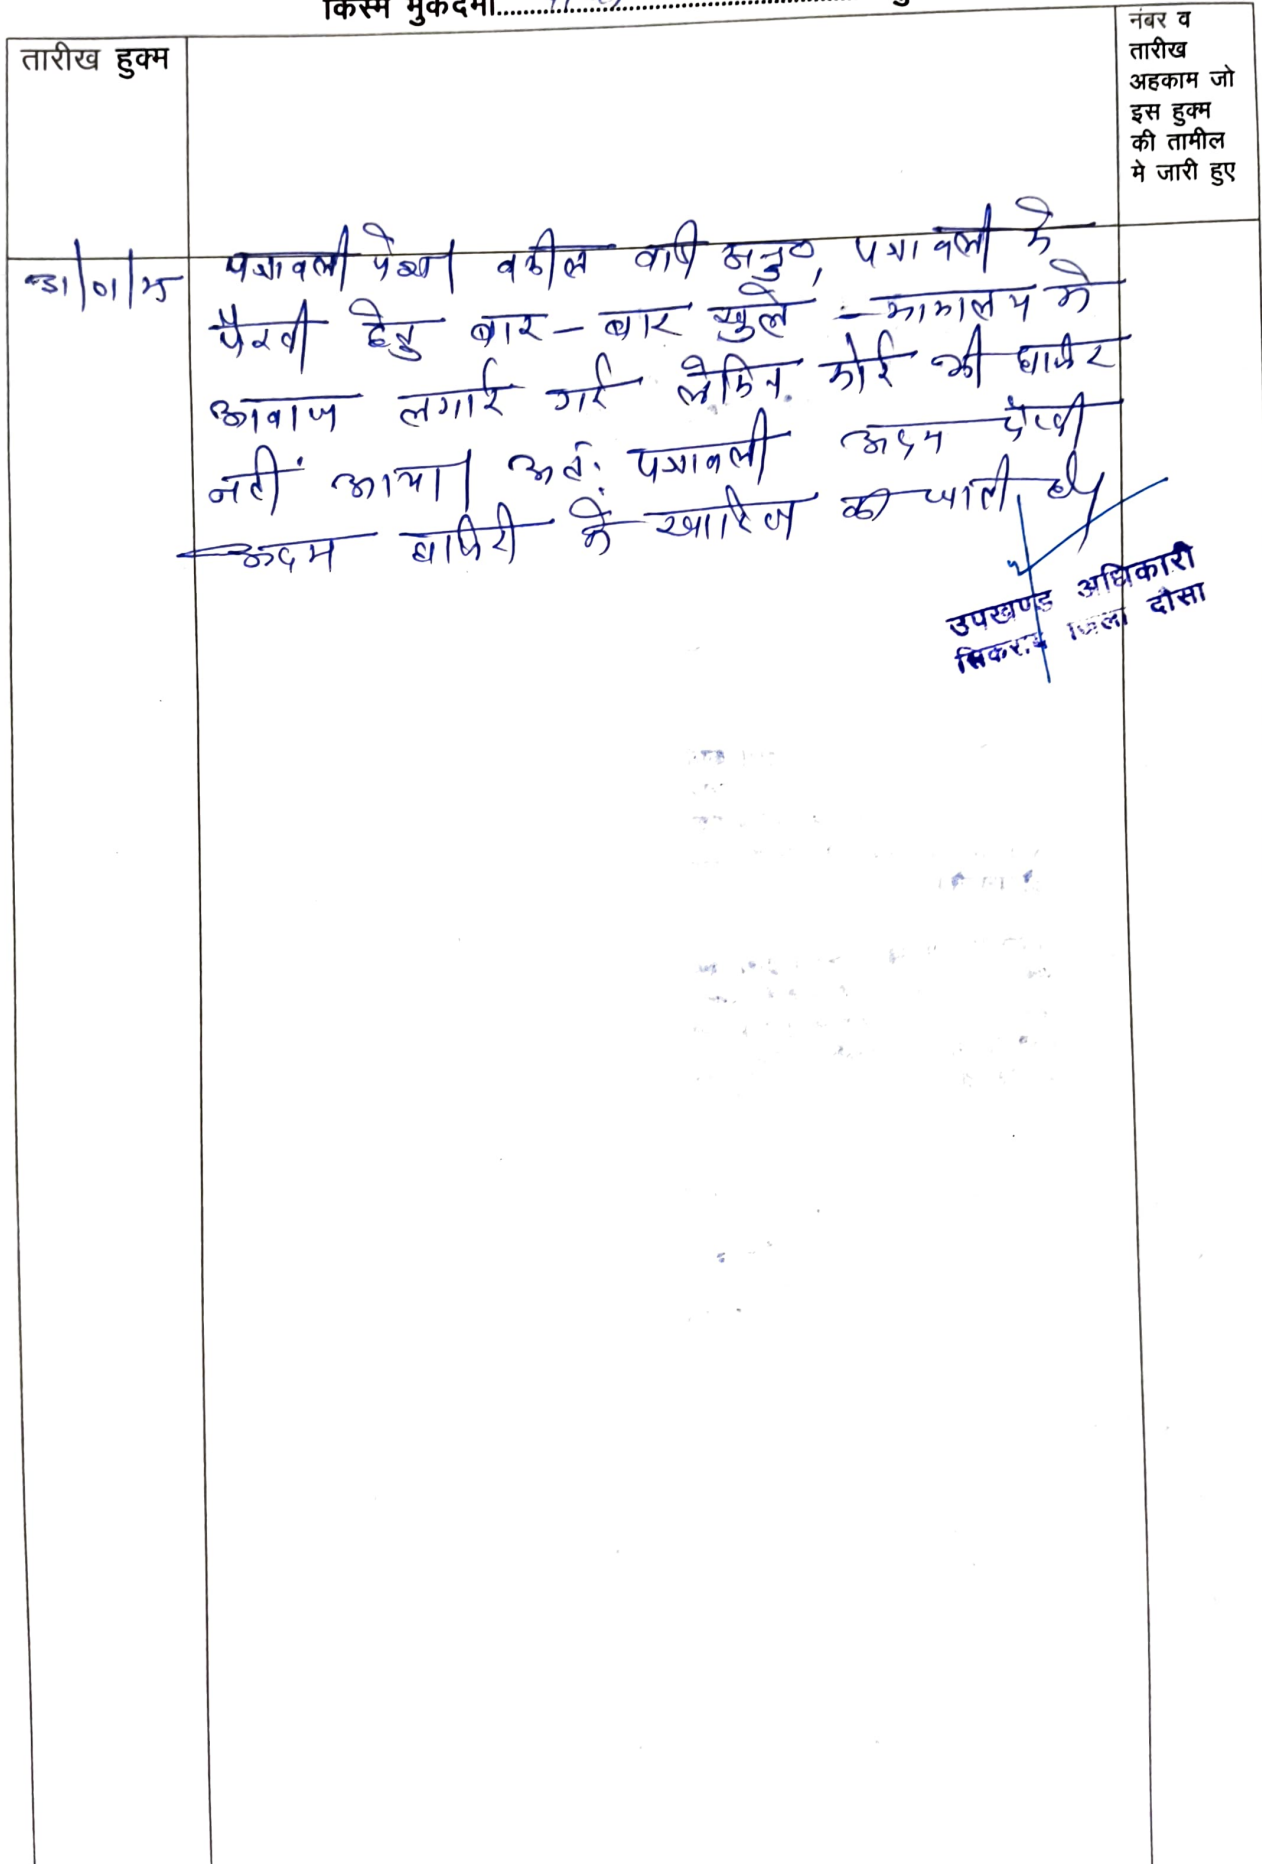 किस्म मुकदमा
तारीख हुक्म
नंबर व
तारीख
अहकाम जो
इस हुक्म
की तामील
मे जारी हुए
पत्रावली पेश। वकील वादी अनु०, पत्रावली मे
पैरवी हेतु बार - बार खुले न्यायालय मे
आवाज लगाई गई लेकिन कोई भी हाजिर
नहीं आया। अतः पत्रावली अदम पैरवी
अदम हाजिरी में खारिज की जाती है।
उपखण्ड अधिकारी
सिकराय जिला दौसा